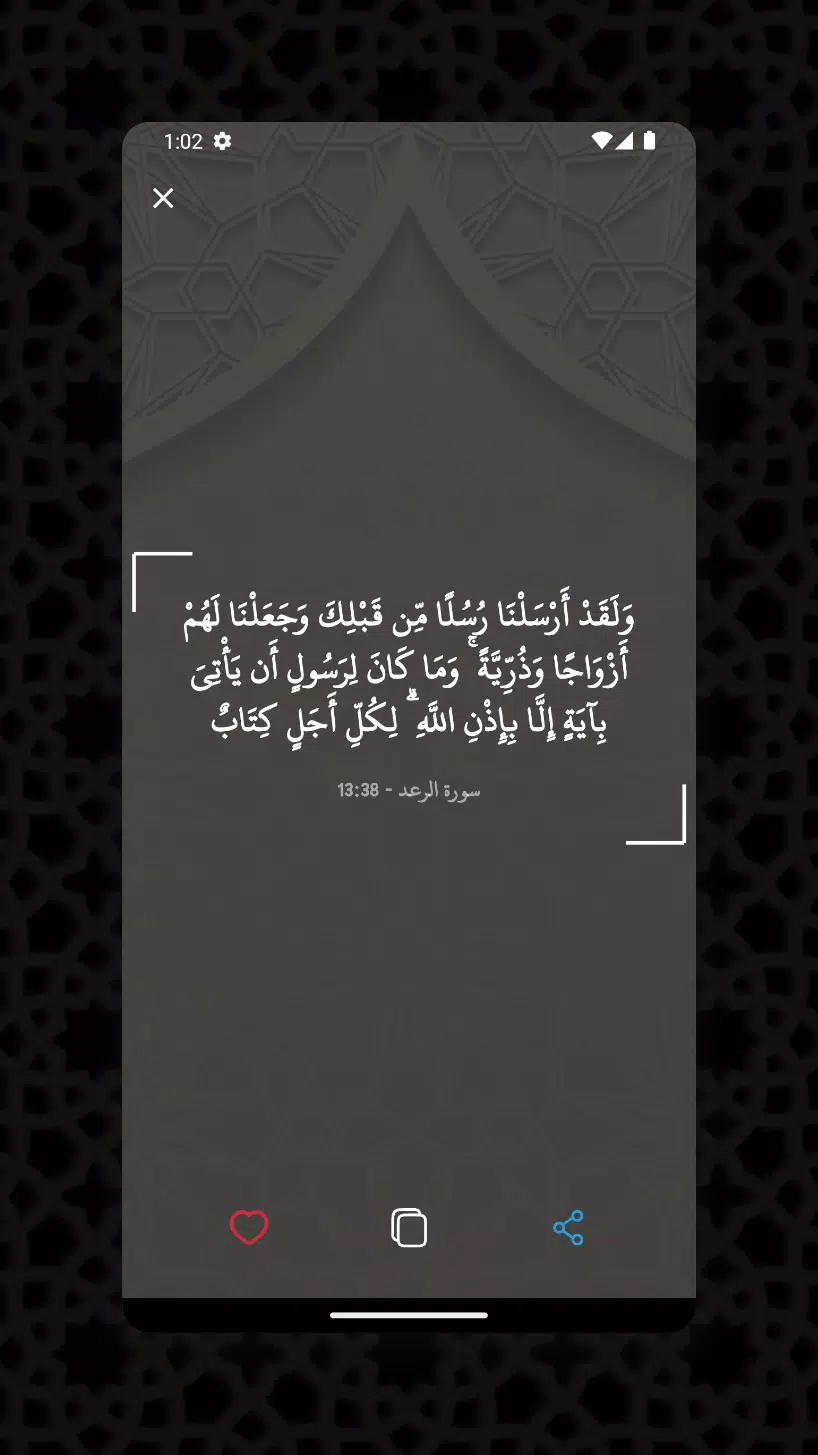 1:02
وَلَقَدْ أَرْسَلْنَا رُسُلًا مِّن قَبْلِكَ وَجَعَلْنَا لَهُمْ
أَزْوَاجًا وَذُرِّيَّةً ۚ وَمَا كَانَ لِرَسُولٍ أَن يَأْتِىَ
بِآيَةٍ إِلَّا بِإِذْنِ اللَّهِ ۗ لِكُلِّ أَجَلٍ كِتَابٌ
سورة الرعد - 13:38